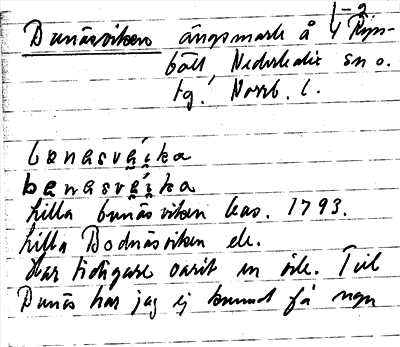 1-2
Bunäsviken ängsmark å
bäll Nederkalix sn o.
tg. Norrb. l.
bɵnasvaika
bɵnasvaika
Lilla bunäsviken kas. 1793.
Lilla Bodnäsviken ek.
Har tidigare varit en vik. Till
Bunäs har jag ej kunnat få ngn